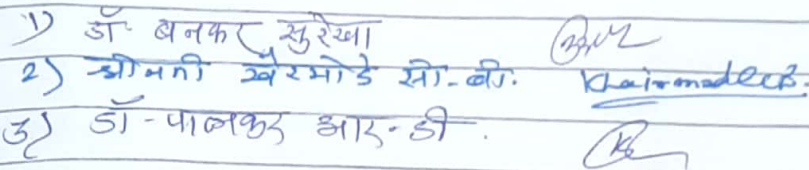 1) डॉ. बनकर सुरेखा
2) श्रीमती खैरमोडे सी.बी. KhairmodeCB.
3) डॉ-पालकर आर-डी.